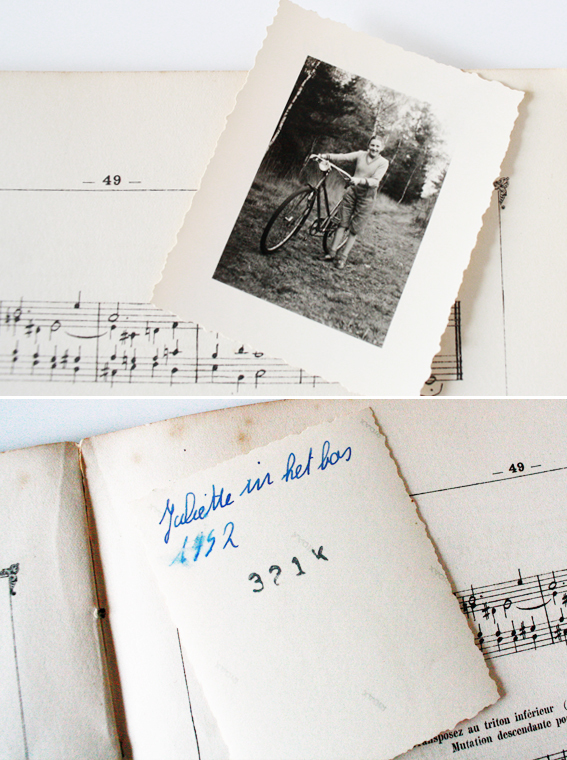 — 49 —
Juliette in het bos
1952
321K
— 49 —
transposez au triton inférieur (
Mutation descendante po